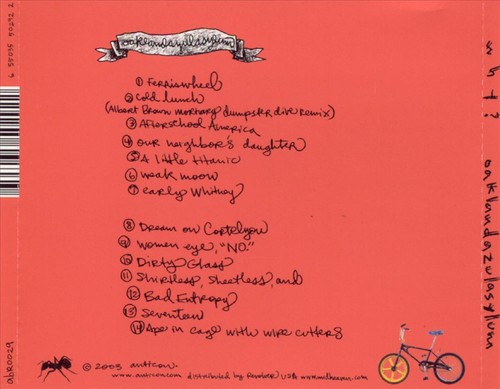 oaklandazulasylum
① Ferriswheel
② Cold lunch
(Albert Brown mortuary dumpster dive remix)
③ Afterschool America
④ our neighbor's daughter
⑤ A little titanic
⑥ weak moon
⑦ early Whitney
⑧ Dream on Cortelyou
⑨ women eye, "NO."
⑩ Dirty Glass
⑪ Shirtless, Sheetless, and
⑫ Bad Entropy
⑬ Seventeen
⑭ Ape in cage with wire cutters
© 2003 anticon.
www.anticon.com distributed by Revolver USA www.midheaven.com
abR0029
why?
oaklandazulasylum